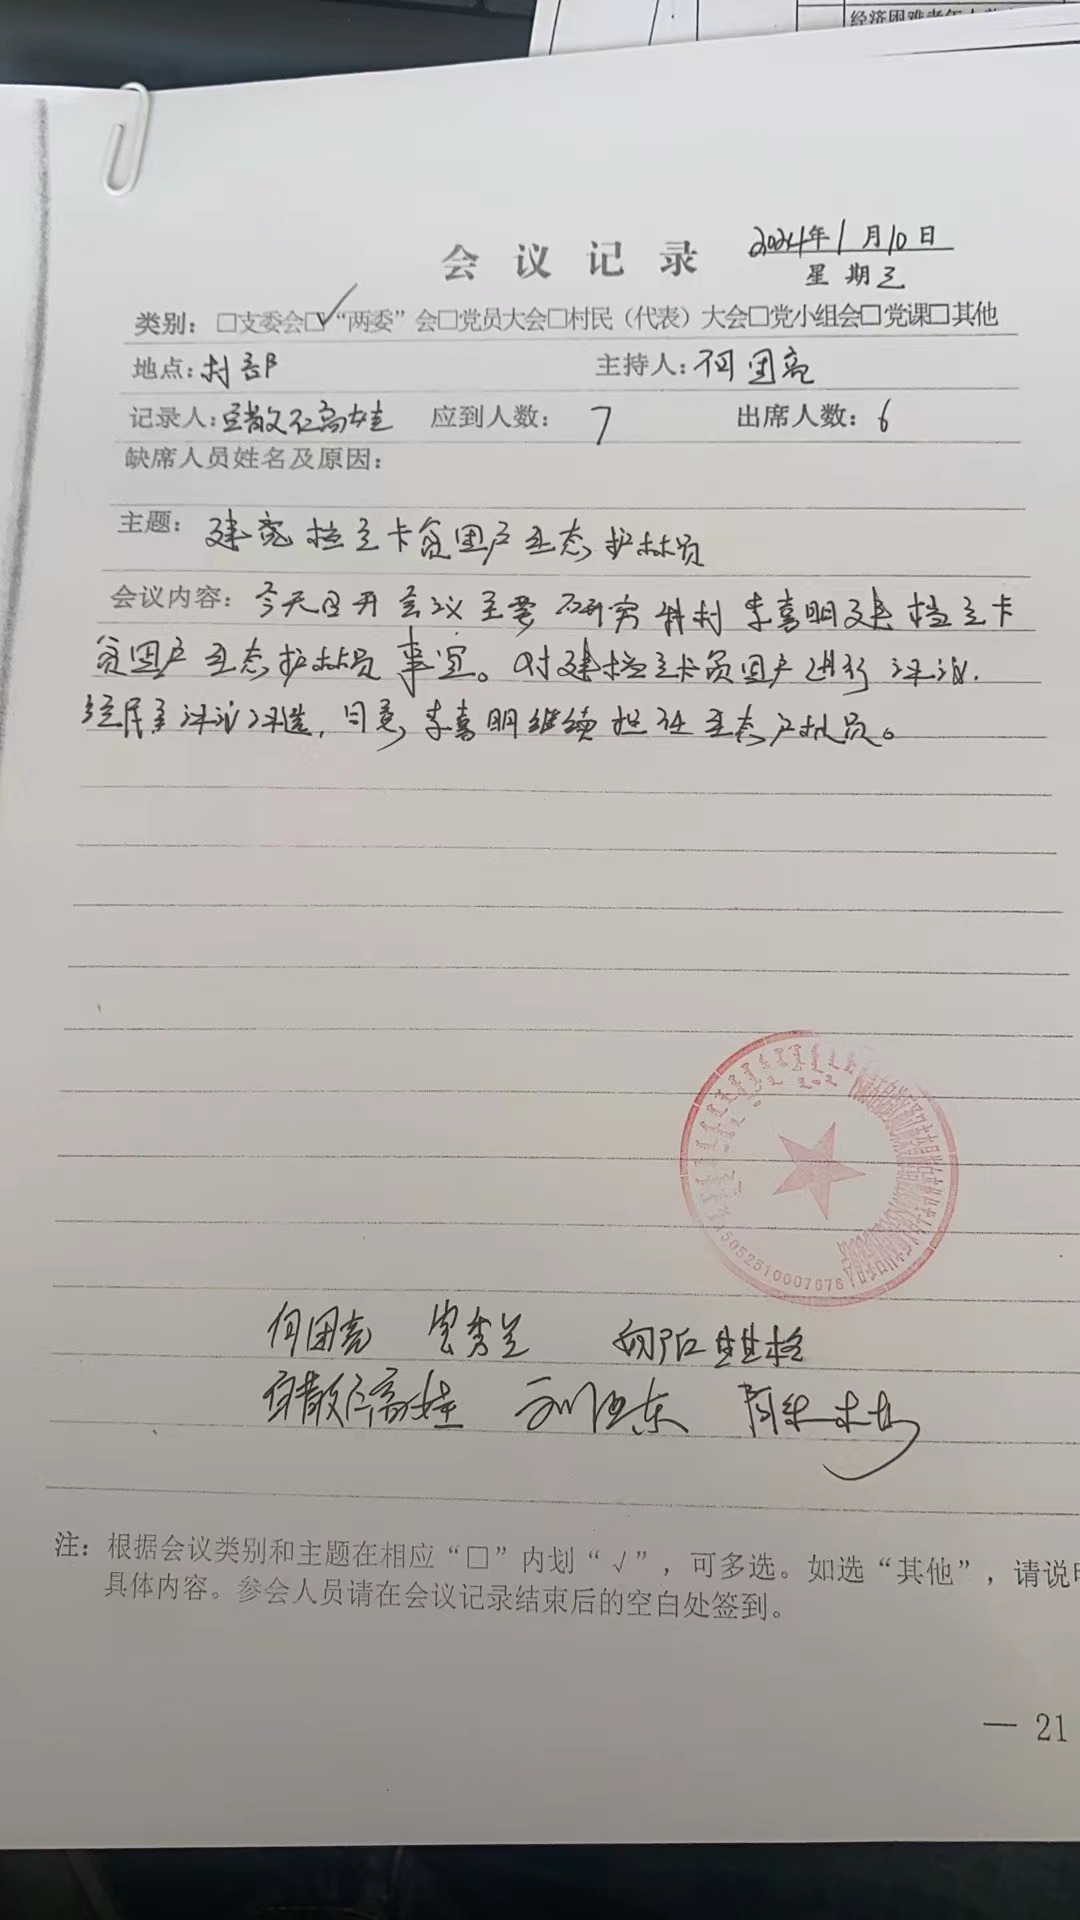 经济困难老年人
会议记录
2024年1月10日
星期三
类别：□支委会☑“两委”会□党员大会□村民（代表）大会□党小组会□党课□其他
地点：村部 主持人：何团亮
记录人：高娃 应到人数：7 出席人数：6
缺席人员姓名及原因：
主题：建完档立卡贫困户生态护林员
会议内容：今天召开会议主要研究我村李喜明建档立卡
贫困户生态护林员事宜。对建档立卡贫困户进行评议.
经民主评议评选，同意，李喜明继续担任生态护林员。
15052510007676
何团亮 秀兰
高娃
注：根据会议类别和主题在相应“□”内划“√”，可多选。如选“其他”，请说明
具体内容。参会人员请在会议记录结束后的空白处签到。
— 21